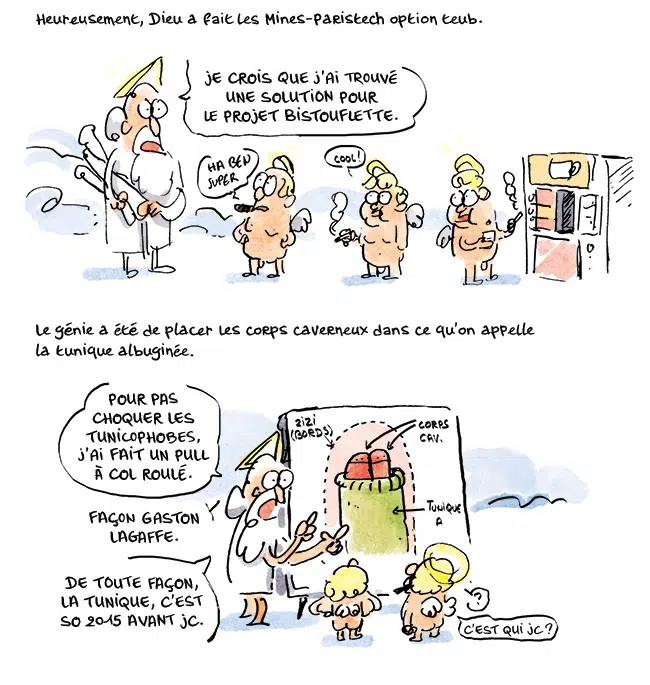 Heureusement, Dieu a fait les Mines-Paristech option teub.
JE CROIS QUE J'AI TROUVÉ
UNE SOLUTION POUR
LE PROJET BISTOUFLETTE.
HA BEN
SUPER
COOL!
Le génie a été de placer les corps caverneux dans ce qu'on appelle
la tunique albuginée.
POUR PAS
CHOQUER LES
TUNICOPHOBES,
J'AI FAIT UN PULL
À COL ROULÉ.
ZIZI
(BORDS)
CORPS
CAV.
TUNIQUE
A
FAÇON GASTON
LAGAFFE.
DE TOUTE FAÇON,
LA TUNIQUE, C'EST
SO 2015 AVANT JC.
?
C'EST QUI JC?